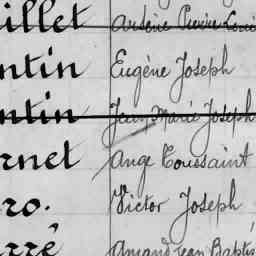 illet Arsène Pierre Loui
ntin Eugène Joseph
ntin Jean Marie Joseph
rnet Ange Toussaint
ro. Victor Joseph
rré Amand Jean Baptis